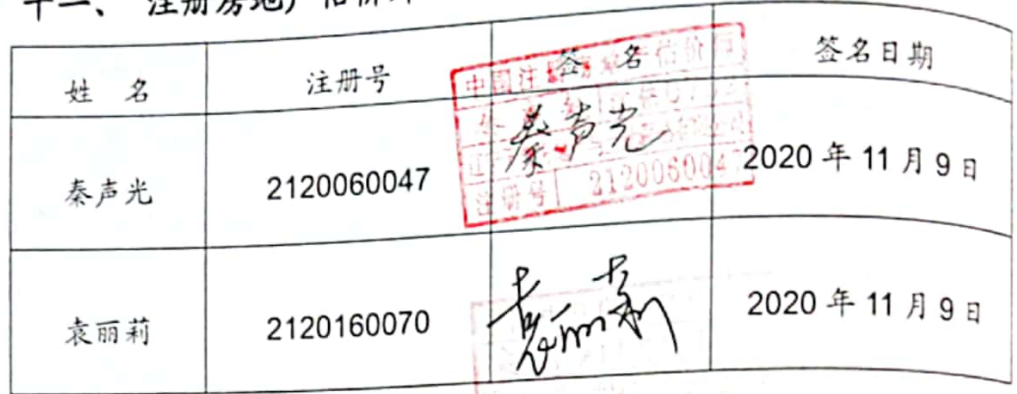 十一、 注册房地产估价师
姓 名 注册号 签 名 签名日期
秦声光 2120060047 秦声光 2020 年 11 月 9 日
注册号 2120060047
袁丽莉 2120160070 袁丽莉 2020 年 11 月 9 日